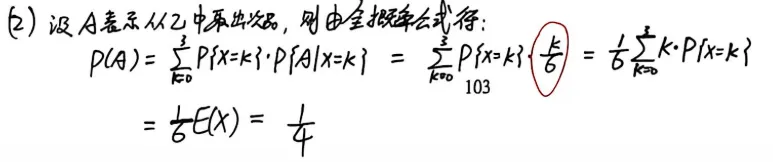 (2) 设A表示从乙中取出次品，则由全概率公式得：
P(A) = ∑_{k=0}^{3} P{X=k}·P{A|X=k} = ∑_{k=0}^{3} P{X=k}·k/6 = 1/6 ∑_{k=0}^{3} k·P{X=k}
103
= 1/6 E(X) = 1/4